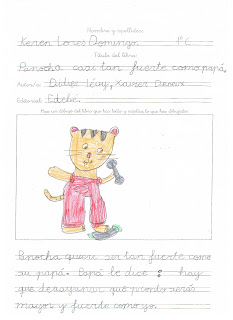 Nombre y apellidos:
Keren Lores Domingo 1º C
Título del libro:
Panocha casi tan fuerte como papá.
Autor/a: Didier Lévy, Xavier Deneux
Editorial: Edebé.
Haz un dibujo del libro que has leído y explica lo que has dibujado:
Panocha quiere ser tan fuerte como
su papá. Papá le dice : hay
que desayunar que pronto serás
mayor y fuerte como yo.